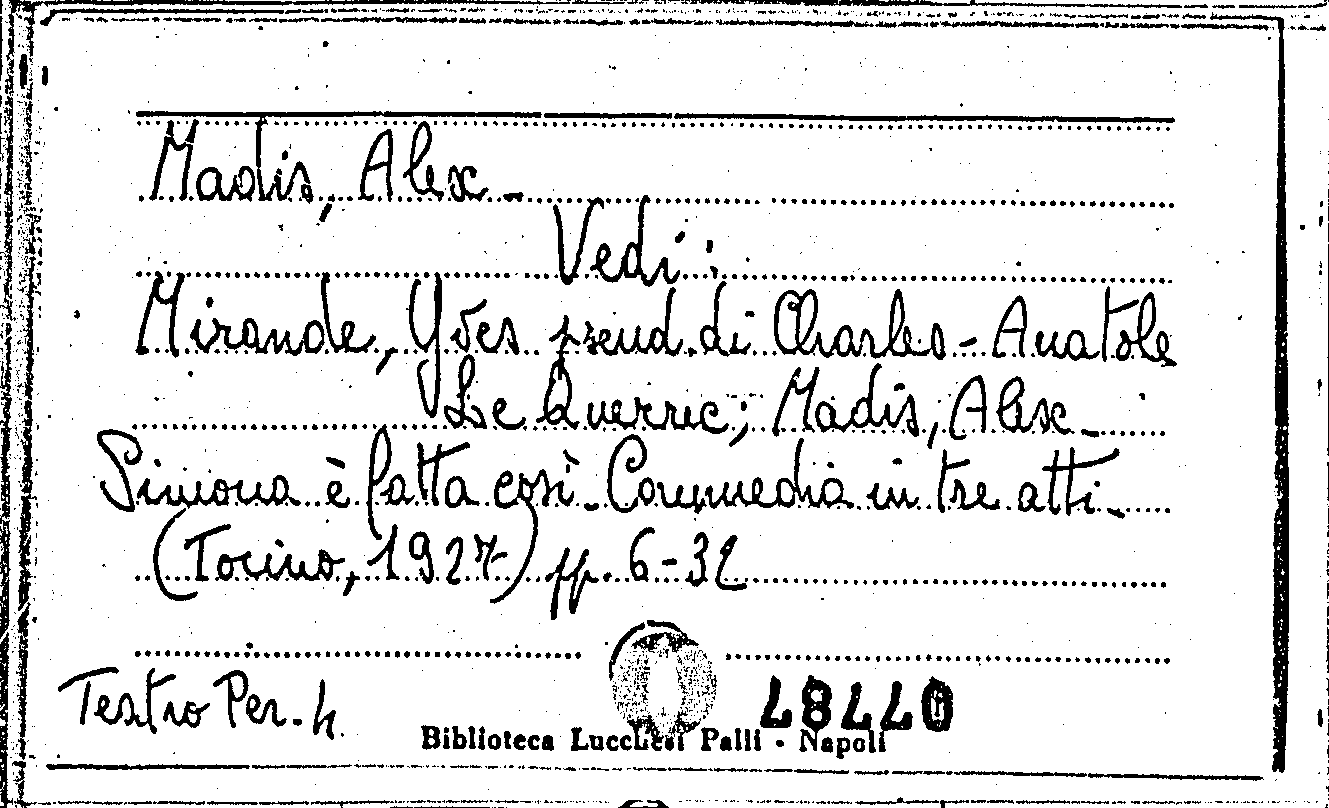 Madis, Alex -
Vedi :
Mirande, Yves pseud. di Charles - Anatole
Le Querrec; Madis, Alex -
Simona è fatta così - Commedia in tre atti -
(Torino, 1927) pp. 6-32
Teatro Per. 4.
Biblioteca Lucchesi Palli - Napoli